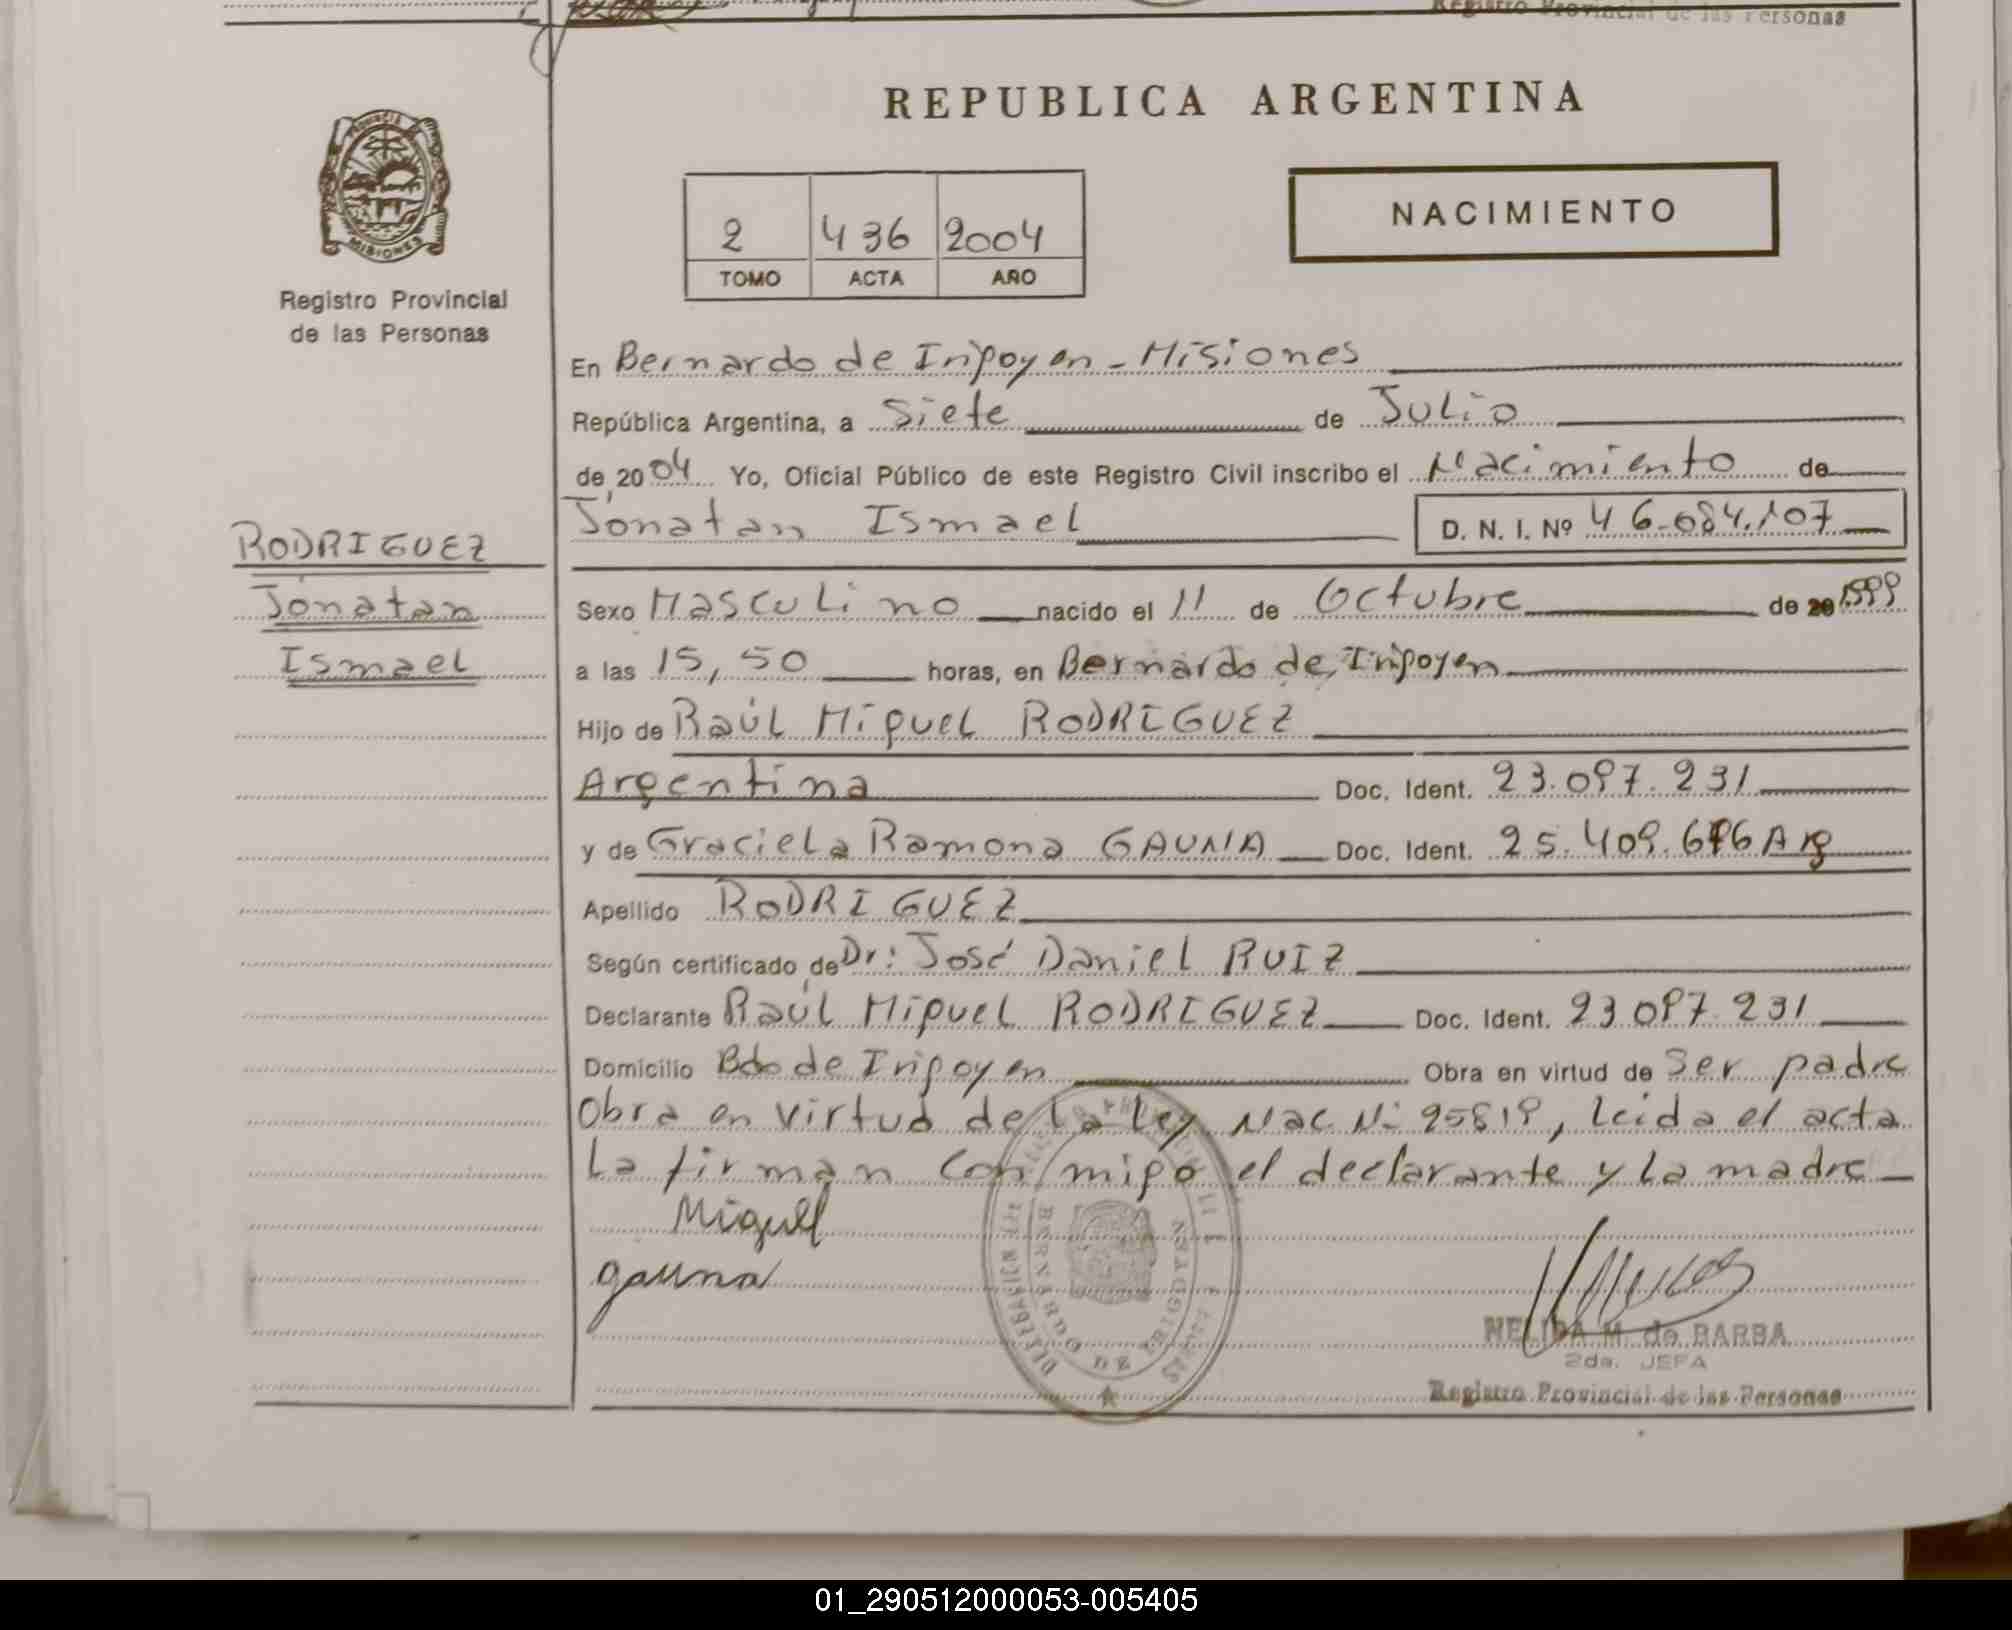 Registro Provincial de las Personas
PROVINCIA DE
MISIONES
Registro Provincial
de las Personas
REPUBLICA ARGENTINA
2 436 2004
TOMO ACTA AÑO
NACIMIENTO
En Bernardo de Irigoyen - Misiones
República Argentina, a Siete de Julio
de 2004 Yo, Oficial Público de este Registro Civil inscribo el Nacimiento de
Jónatan Ismael D. N. I. Nº 46.084.107
RODRIGUEZ
Jónatan
Ismael
Sexo Masculino nacido el 11 de Octubre de 20 1999
a las 15,50 horas, en Bernardo de Irigoyen
Hijo de Raúl Miguel RODRIGUEZ
Argentina Doc. Ident. 23.097.231
y de Graciela Ramona GAUNA Doc. Ident. 25.409.676 Arg
Apellido RODRIGUEZ
Según certificado de Dr: José Daniel RUIZ
Declarante Raúl Miguel RODRIGUEZ Doc. Ident. 23.097.231
Domicilio Bdo de Irigoyen Obra en virtud de Ser padre
Obra en virtud de la Ley Nac N: 25819, leida el acta
la firman conmigo el declarante y la madre
Miguel
gauna
BERNARDO DE IRIGOYEN
NELIDA M. de BARBA
2da. JEFA
Registro Provincial de las Personas
01_290512000053-005405